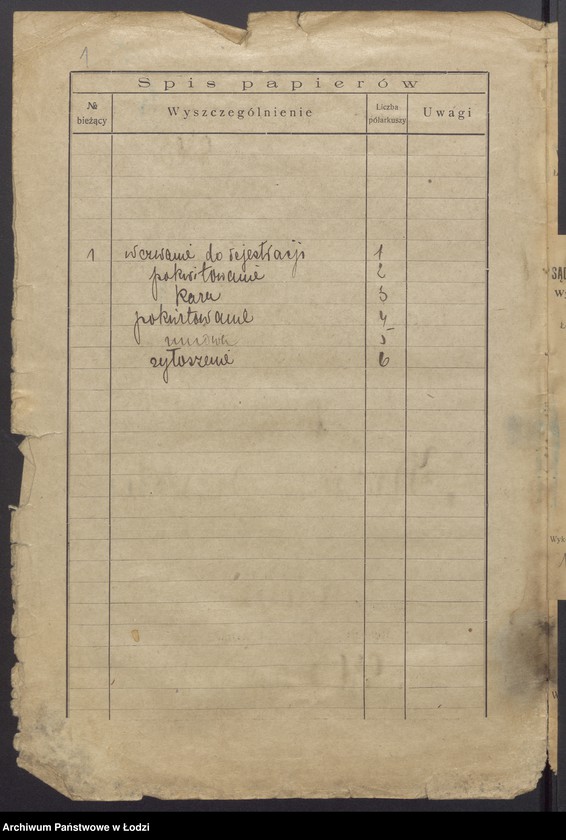 1
Spis papierów
№ bieżący Wyszczególnienie Liczba półarkuszy Uwagi
1 wezwanie do rejestracji 1
pokwitowanie 2
kara 3
pokwitowanie 4
umowa 5
zgłoszenie 6
Archiwum Państwowe w Łodzi